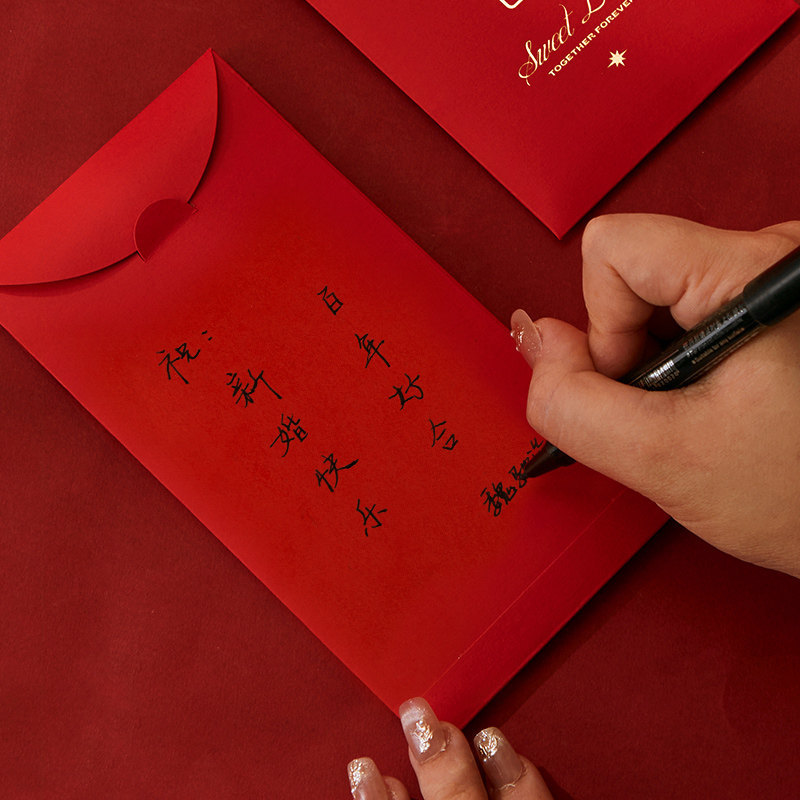 祝：
新婚快乐
百年好合
魏
Sweet
TOGETHER FOREVER